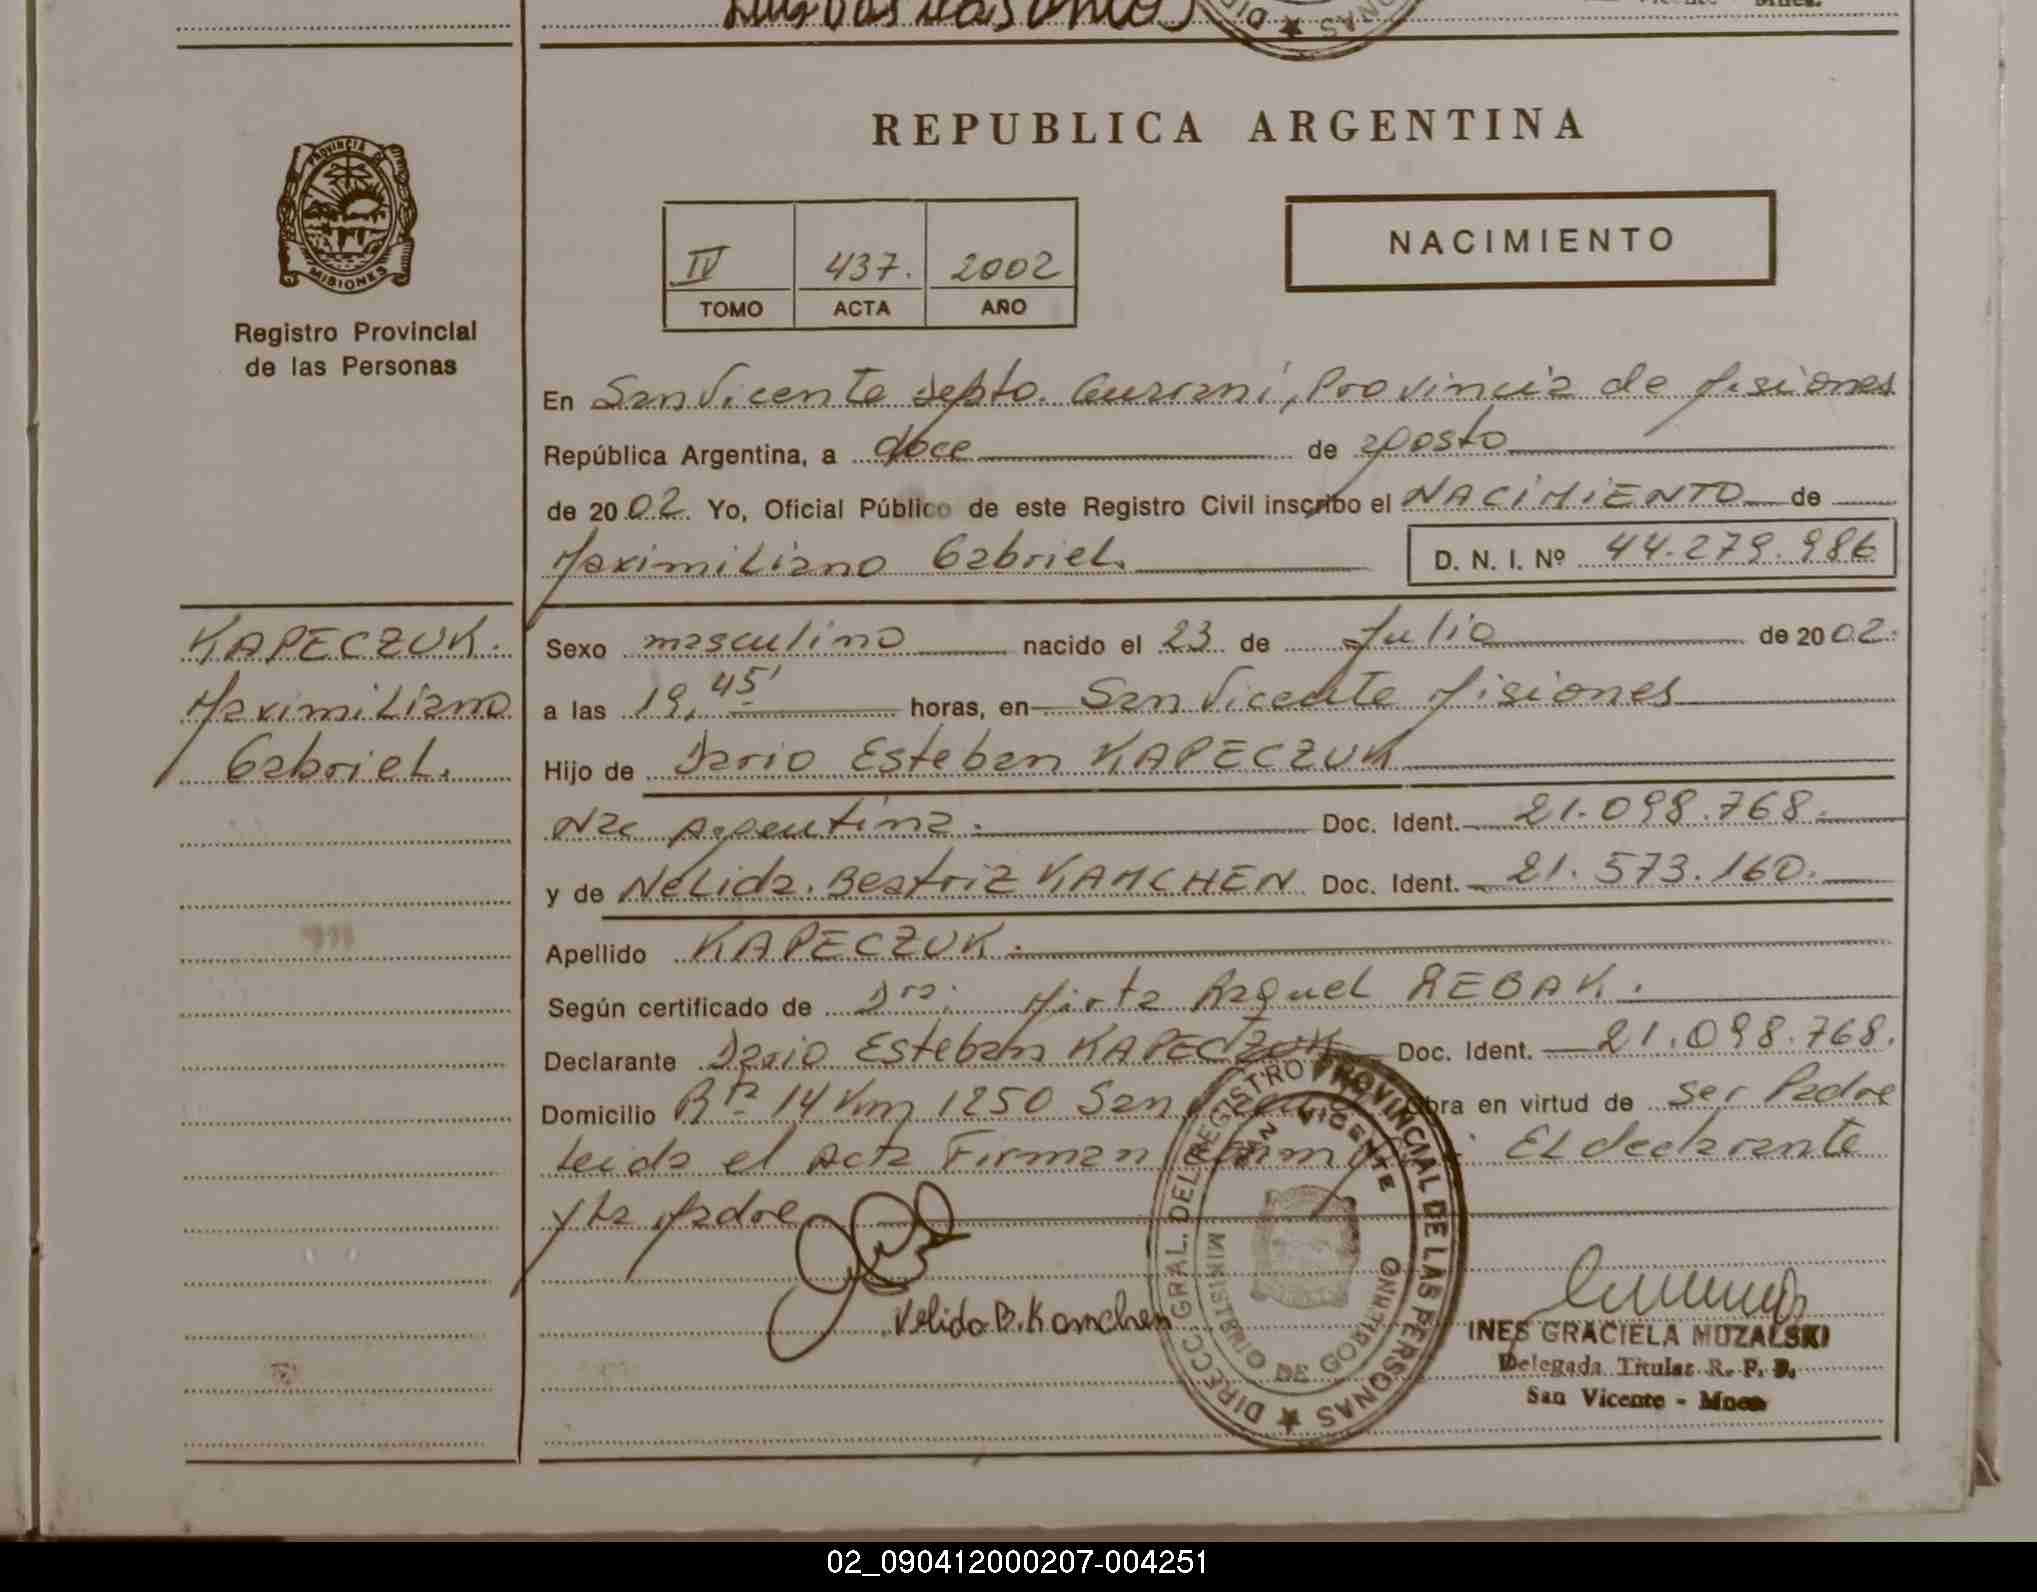 PROVINCIA DE
MISIONES
Registro Provincial
de las Personas
KAPECZUK.
Maximiliano
Gabriel.
REPUBLICA ARGENTINA
IV 437. 2002
TOMO ACTA AÑO
NACIMIENTO
En San Vicente Depto. Guarani, Provincia de Misiones
República Argentina, a doce de agosto
de 2002 Yo, Oficial Público de este Registro Civil inscribo el NACIMIENTO de
Maximiliano Gabriel. D. N. I. Nº 44.279.986
Sexo masculino nacido el 23 de Julio de 2002.
a las 19,45' horas, en San Vicente Misiones
Hijo de Dario Esteban KAPECZUK
Nac Argentina. Doc. Ident. 21.098.768.
y de Nelida. Beatriz KAMCHEN Doc. Ident. 21.573.160.
Apellido KAPECZUK.
Según certificado de Dra. Mirta Raquel REBAK.
Declarante Dario Esteban KAPECZUK Doc. Ident. 21.098.768.
Domicilio Rta 14 Km 1250 San Vicente Obra en virtud de ser Padre
Leida el Acta Firman Conmigo: El declarante
y la Madre
Nelida B. Kamchen
DIRECC. GRAL. DEL REGISTRO PROVINCIAL DE LAS PERSONAS
SAN VICENTE
MINISTERIO DE GOBIERNO
INES GRACIELA MUZALSKI
Delegada Titular R. P. P.
San Vicente - Mnes
02_090412000207-004251